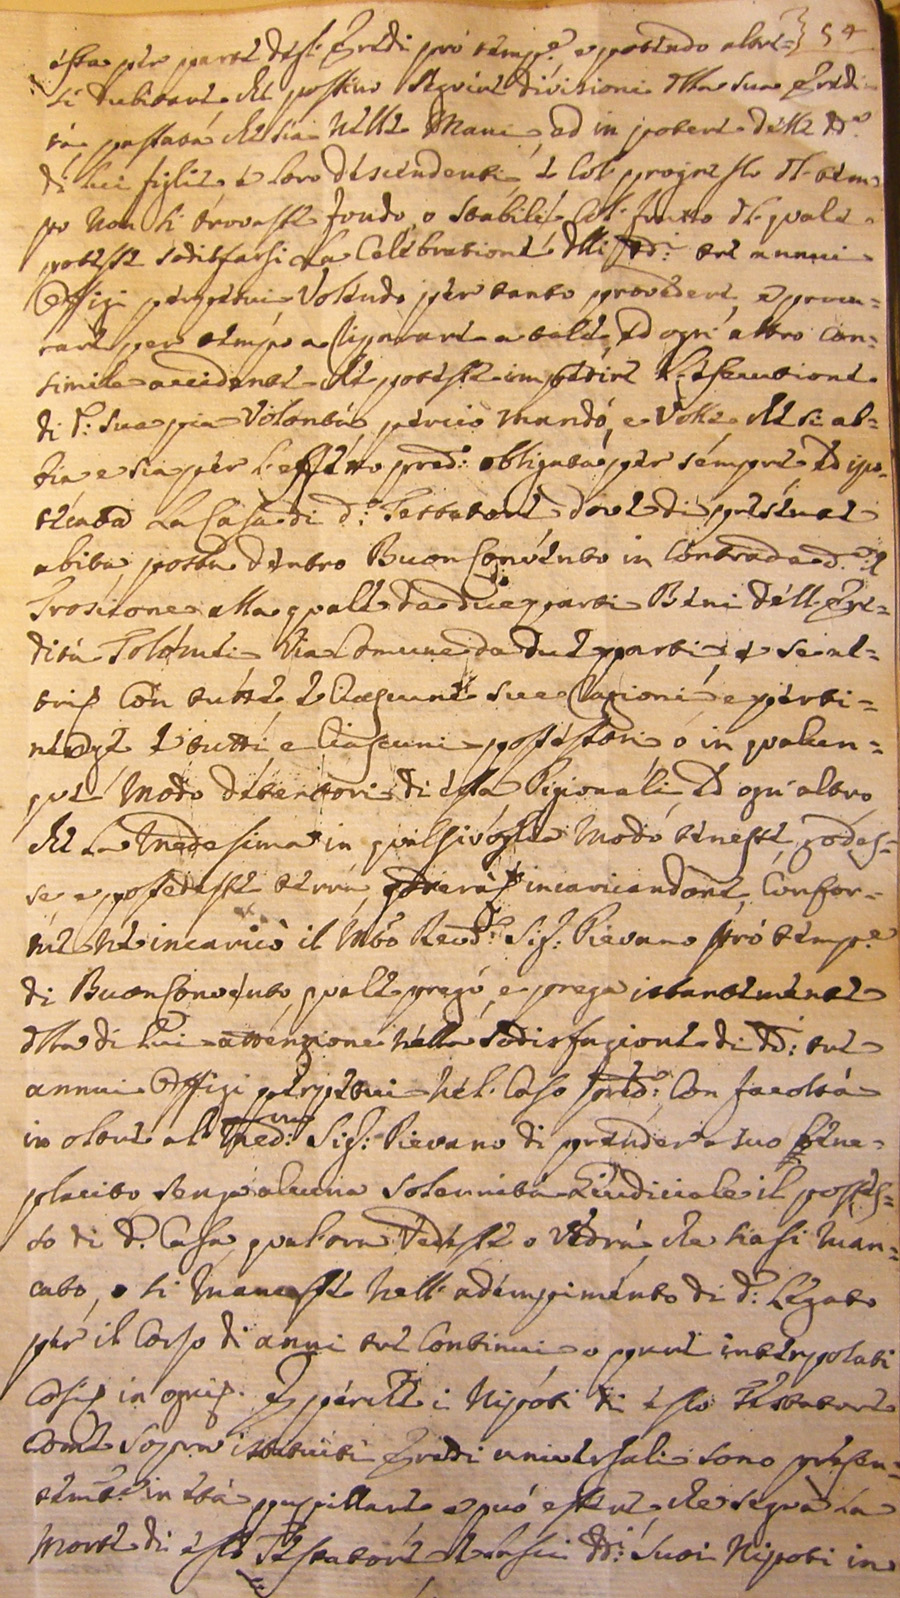 essa per parte degl'Eredi prò temp:e e potendo altre= 54
si dubitare che possino seguire divisioni della sua Eredi=
tà passata che sia nelle Mani, ad in potere delli dd.i
di lui figli e loro descendenti, e col progresso del tem=
po non si trovasse fondo, o stabile, col frutto del quale
potesse sodisfarsi la Celebratione delli dd:i tre annui
Offizi perpetui, Volendo per tanto provedere, e procu=
rare per tempo a riparare a tale, ed ogni altro con=
simile accidente che potesse impedire l'esecutione
di d:a sua pia Volontà perciò mandò, e Volle che si ab=
bia e sia per l'effetto pred:o obligata per sempre ed ipo=
tecata La Casa di d:o Testatore dove di presente
abita posta dentro Buonconvento in Contrada d.a
alla quale da due parti Beni dell'Ere=
dità Tolomei, Via Comune da due parti, e se al=
tri con tutte, e Ciascune sue ragioni e perti=
nenze e tutti e Ciascuni possessori o in qualun=
que Modo detentori di essa Pigionali, ed ogn'altro
che La Medesima in qualsivoglia Modo tenesse, godes=
se e possedesse terrà, goderà incaricandone, Confor=
me ne incaricò il Mto Revd:o Sig:r Pievano prò temp:e
di Buonconvento, quale pregò, e prega istantemente
della di Lui attenzione nella sodisfazione di dd:i tre
annui Offizi perpetui nel Caso pred:o Con facoltà
in oltre al Med:o Sig:r Pievano di prender a suo bene=
placito senza alcuna solennità Giudiciale il posses=
so di d.a Casa, qualora Vedesse o Vedrà che siasi Man=
cato, o si Mancasse nell'adempimento di d:o Legato
per il Corso di anni tre Continui o pure interpolati
Così in ogni E perche i Nipoti di esso Testatore
Come sopra istituiti Eredi universali sono presen=
temte in età pupillare, e può essere, che segua La
Morte di esso Testatore e lasci dd:i suoi Nipoti in